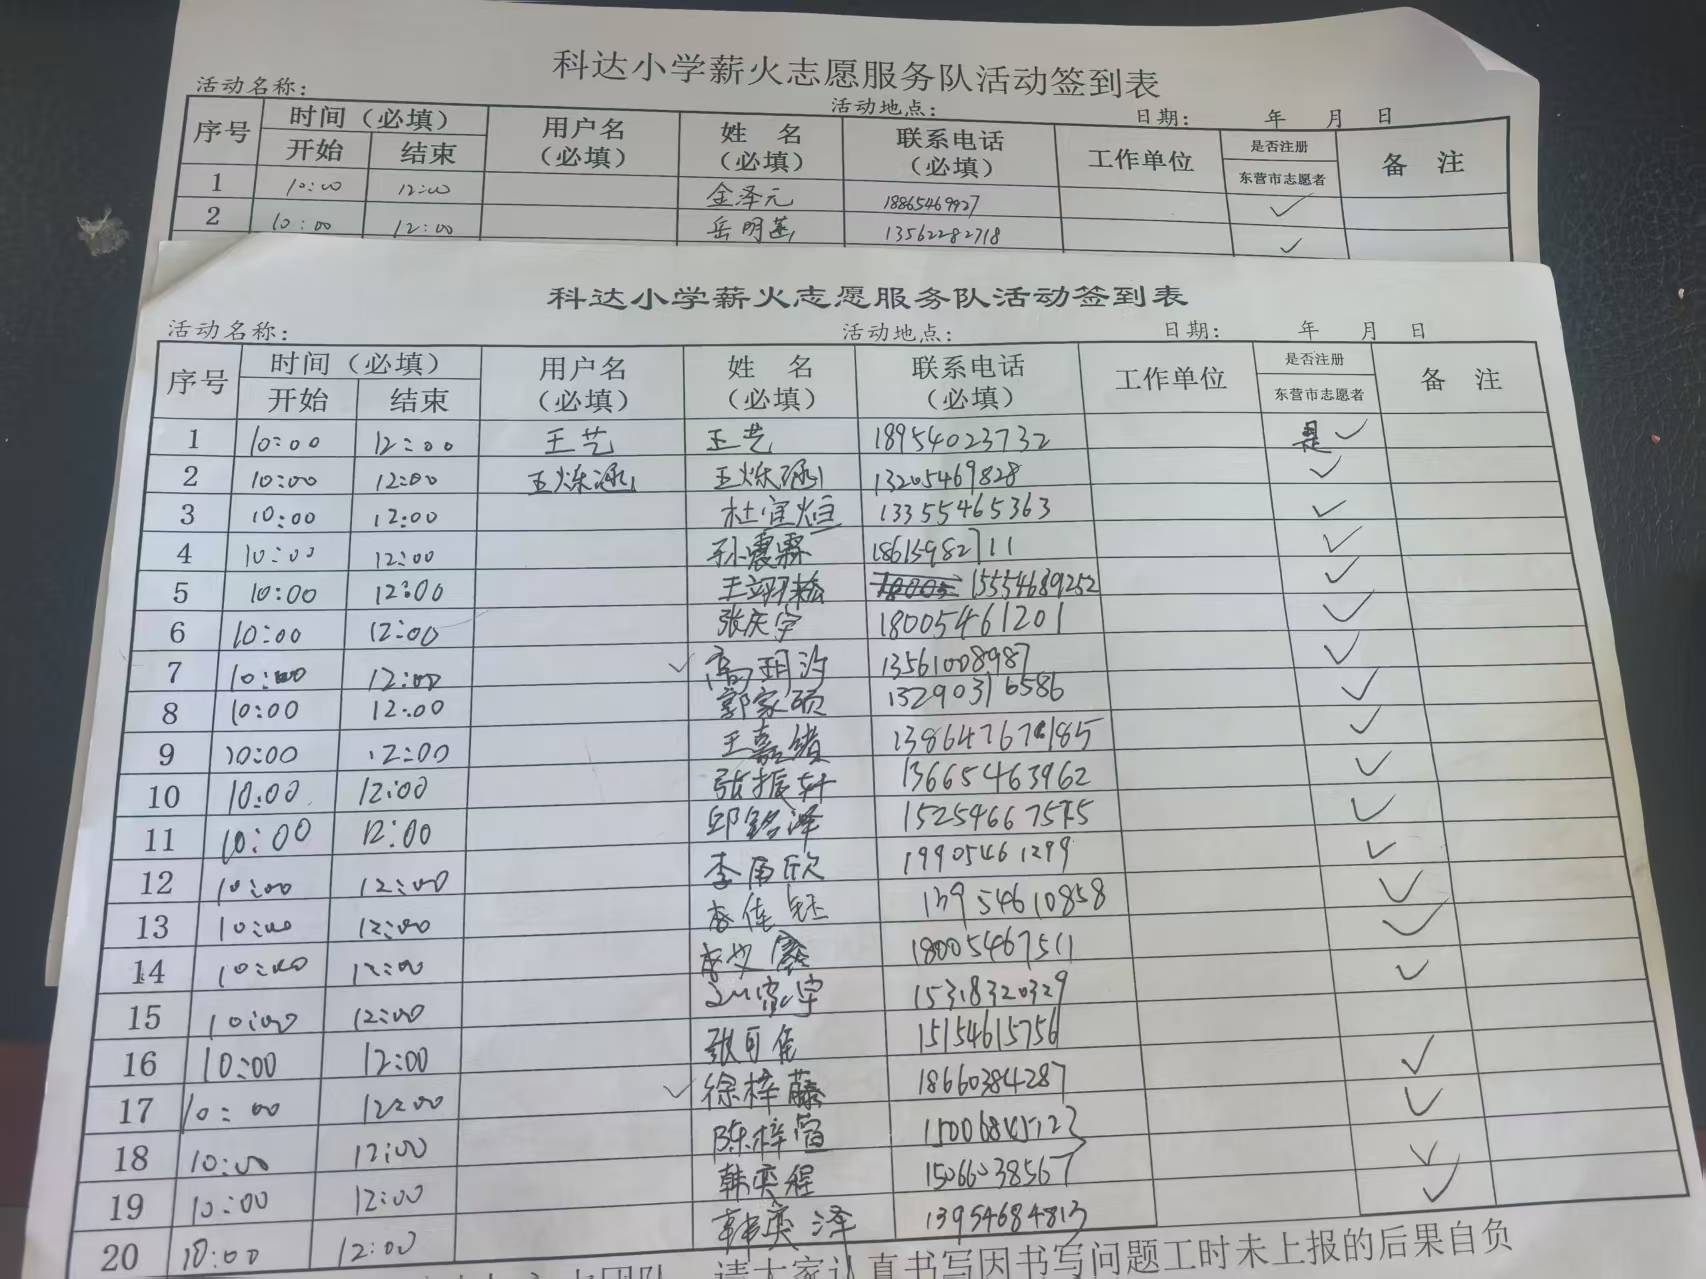 科达小学薪火志愿服务队活动签到表
活动名称： 活动地点： 日期： 年 月 日
序号 时间（必填） 用户名（必填） 姓 名（必填） 联系电话（必填） 工作单位 是否注册 东营市志愿者 备 注
开始 结束
1 10:00 12:00 金泽元 18865469927 ✓
2 10:00 12:00 岳明 13562282718 ✓
科达小学薪火志愿服务队活动签到表
活动名称： 活动地点： 日期： 年 月 日
序号 时间（必填） 用户名（必填） 姓 名（必填） 联系电话（必填） 工作单位 是否注册 东营市志愿者 备 注
开始 结束
1 10:00 12:00 王艺 王艺 18954023732 是 ✓
2 10:00 12:00 王烁涵 王烁涵 13205469828 ✓
3 10:00 12:00 杜宜烜 13355465363 ✓
4 10:00 12:00 孙震霖 18615982711 ✓
5 10:00 12:00 王翊菘 15554689252 ✓
6 10:00 12:00 张庆宇 18005461201 ✓
7 10:00 12:00 ✓ 高玥汐 13561008987 ✓
8 10:00 12:00 郭家硕 13290316586 ✓
9 10:00 12:00 王嘉绪 ✓
10 10:00 12:00 张振轩 13665463962 ✓
11 10:00 12:00 邱铭泽 ✓
12 10:00 12:00 李雨欣 19905461299 ✓
13 10:00 12:00 李佳钰 13954610858 ✓
14 10:00 12:00 李艾鑫 18005467511 ✓
15 10:00 12:00 刘家宇 15318320329 ✓
16 10:00 12:00 张可佳 15154615756
17 10:00 12:00 ✓ 徐梓藤 18660384287 ✓
18 10:00 12:00 陈梓萱 ✓
19 10:00 12:00 韩奕程 15066038567 ✓
20 10:00 12:00 韩奕泽 13954684813 ✓
请大家认真书写因书写问题工时未上报的后果自负